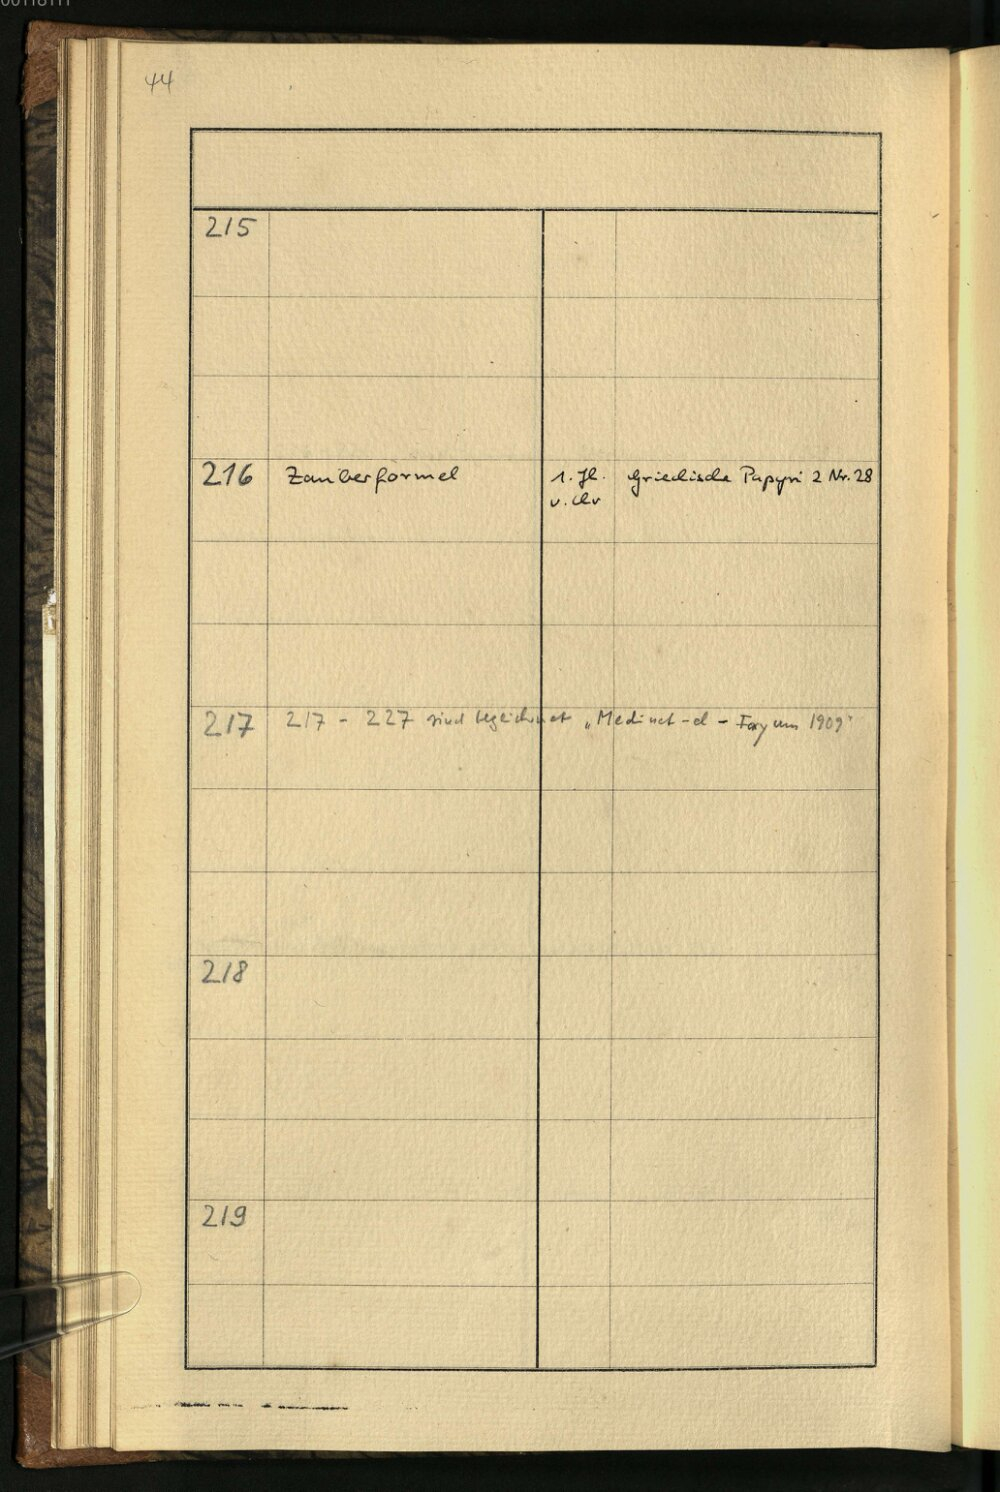 44
215
216 Zauberformel 1. Jh. Griechische Papyri 2 Nr. 28
v. Chr
217 217 - 227 sind bezeichnet „Medinet-el-Fayum 1909"
218
219